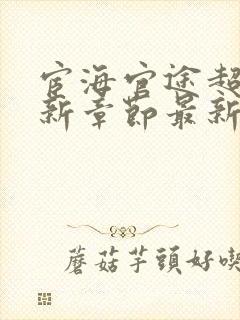 宦海官途超
新章節最新
蘑菇芋頭好喫